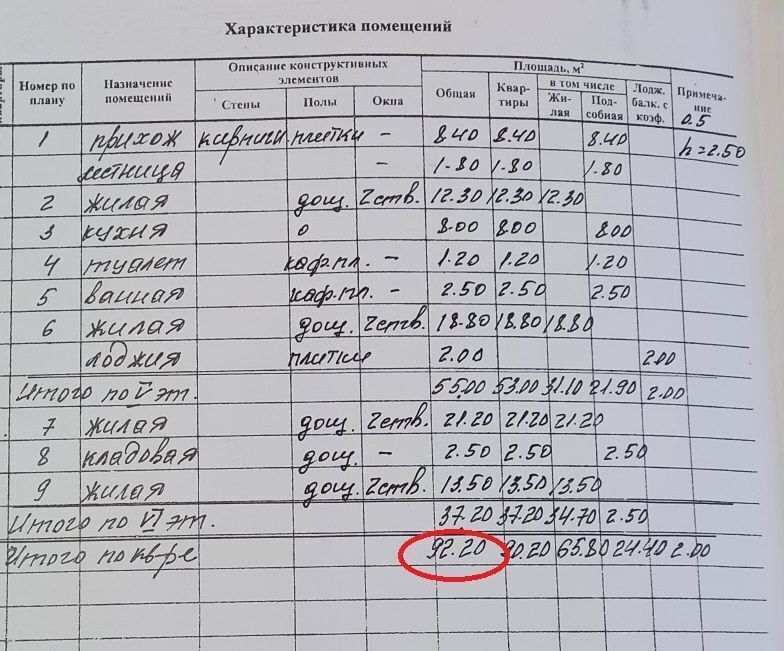 Характеристика помещений
Номер по плану Назначение помещений Описание конструктивных элементов Площадь, м²
Стены Полы Окна Общая Квар- тиры в том числе Жи- лая Под- собная Лодж. балк. с коэф. Примеча- ние
0.5
1 прихож кирпичн. плитки - 8.40 8.40 8.40 h=2.50
лестница - 1.80 1.80 1.80
2 жилая дощ. 2ств. 12.30 12.30 12.30
3 кухня о 8.00 8.00 8.00
4 туалет каф.пл. - 1.20 1.20 1.20
5 ванная каф.пл. - 2.50 2.50 2.50
6 жилая дощ. 2ств. 18.80 18.80 18.80
лоджия плитки 2.00 2.00
Итого по V эт. 55.00 53.00 31.10 21.90 2.00
7 жилая дощ. 2ств. 21.20 21.20 21.20
8 кладовая дощ. - 2.50 2.50 2.50
9 жилая дощ. 2ств. 13.50 13.50 13.50
Итого по VI эт. 37.20 37.20 34.70 2.50
Итого по кв-ре 92.20 90.20 65.80 24.40 2.00